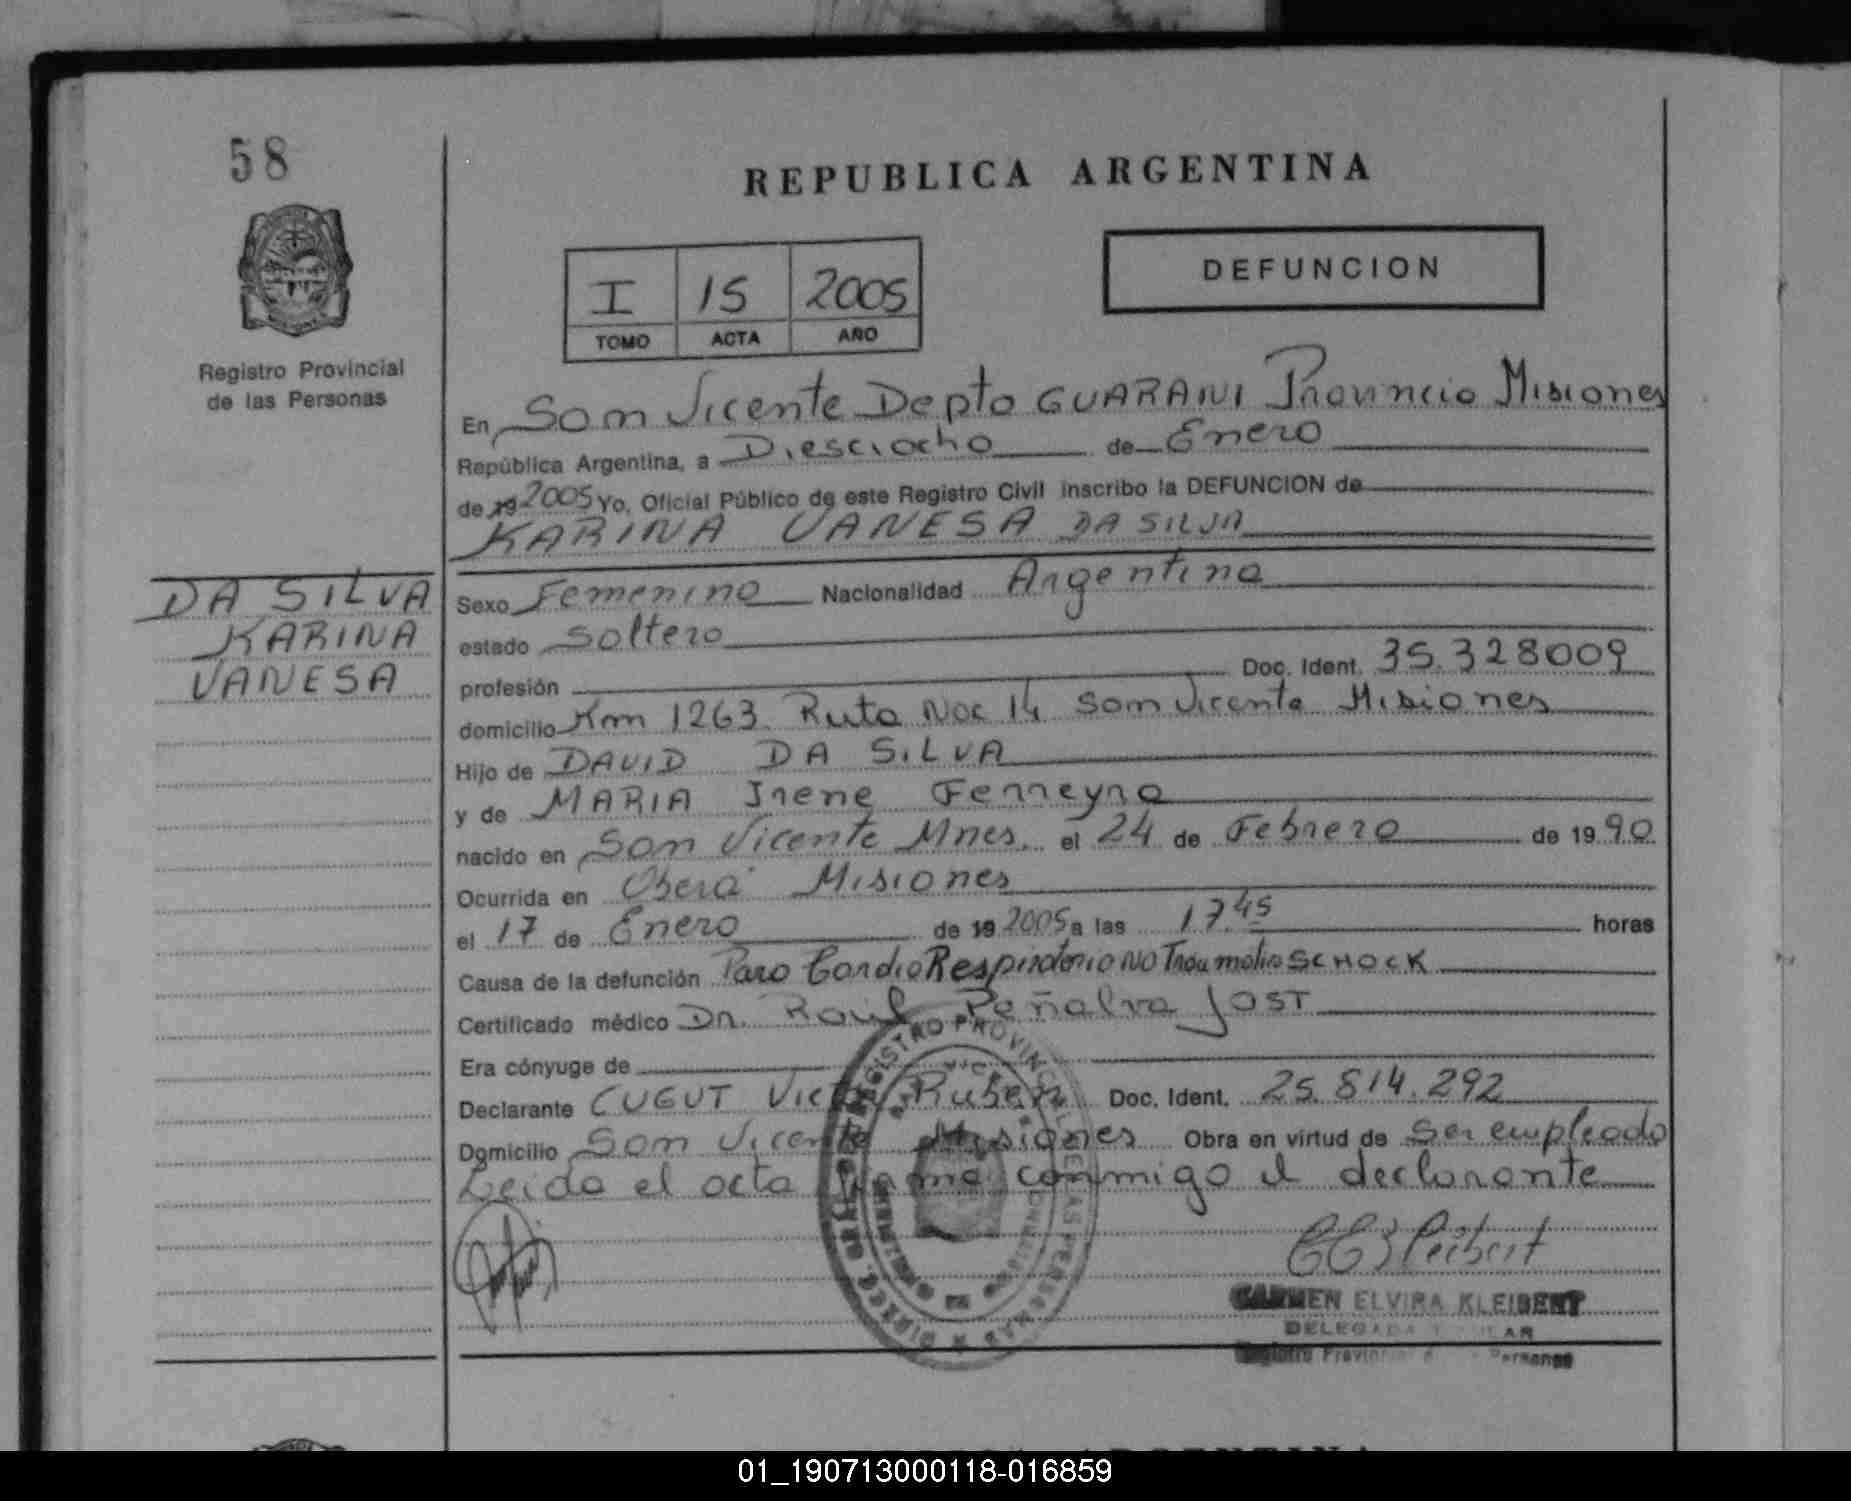 58
REPUBLICA ARGENTINA
I 15 2005
TOMO ACTA AÑO
DEFUNCION
Registro Provincial
de las Personas
En San Vicente Depto GUARANI Provincia Misiones
República Argentina, a Diesciocho de Enero
de 19 2005 Yo, Oficial Público de este Registro Civil inscribo la DEFUNCION de
KARINA VANESA DA SILVA
DA SILVA
KARINA
VANESA
Sexo Femenino Nacionalidad Argentina
estado Soltera
profesión Doc. Ident. 35.328009
domicilio Km 1263 Ruta Nac 14 San Vicente Misiones
Hijo de DAVID DA SILVA
y de MARIA Irene Ferreyra
nacido en San Vicente Mnes. el 24 de Febrero de 1990
Ocurrida en Oberá Misiones
el 17 de Enero de 19 2005 a las 17.45 horas
Causa de la defunción Paro Cardio Respiratorio NO Traumatico SCHOCK
Certificado médico Dr. Raúl Peñalva JOST
Era cónyuge de
Declarante CUGUT Victor Ruben Doc. Ident. 25.814.292
Domicilio San Vicente Misiones Obra en virtud de Ser empleado
Leida el acta firma conmigo el declarante
CARMEN ELVIRA KLEIBERT
DELEGADA
Registro Personas
01_190713000118-016859